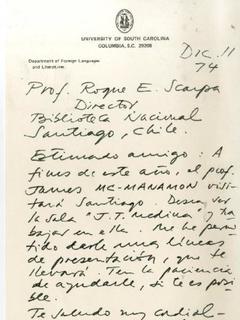 UNIVERSITY OF SOUTH CAROLINA
COLUMBIA, S.C. 29208
Department of Foreign Languages
and Literatures
DIC. 11
74
Prof. Roque E. Scarpa
Director
Biblioteca Nacional
Santiago, Chile.
Estimado amigo: A
fines de este año, el prof.
James MC-MANAMON visi-
tará Santiago. Desea ver
la sala "J.T. Medina" y tra-
bajar en ella. Me he permi-
tido darle unas líneas
de presentación, que te
llevará. Ten la paciencia
de ayudarle, si te es po-
sible.
Te saludo muy cordial-